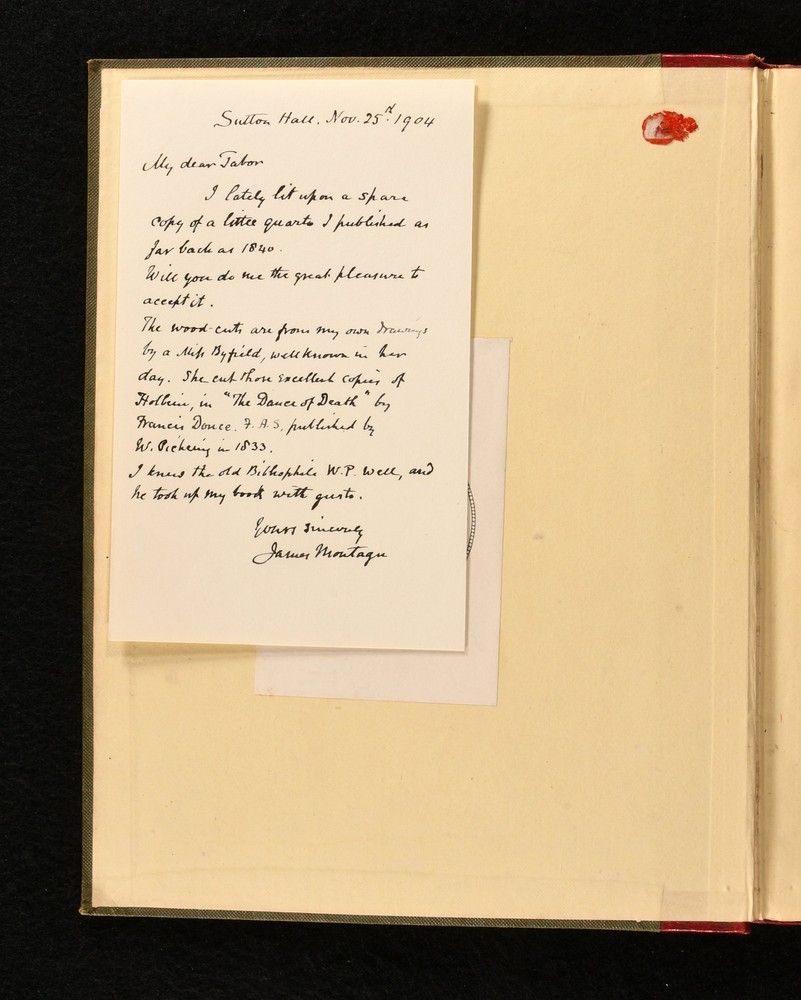 Sutton Hall. Nov. 25th. 1904
My dear Tabor
I lately lit upon a spare
copy of a little quarto I published as
far back as 1840.
Will you do me the great pleasure to
accept it.
The wood-cuts are from my own drawings
by a Miss Byfield, well known in her
day. She cut those excellent copies of
Holbein, in "The Dance of Death" by
Francis Douce. F.A.S. published by
W. Pickering in 1833.
I knew the old Bibliophile W.P. well, and
he took up my book with gusto.
Yours sincerely
James Montagu